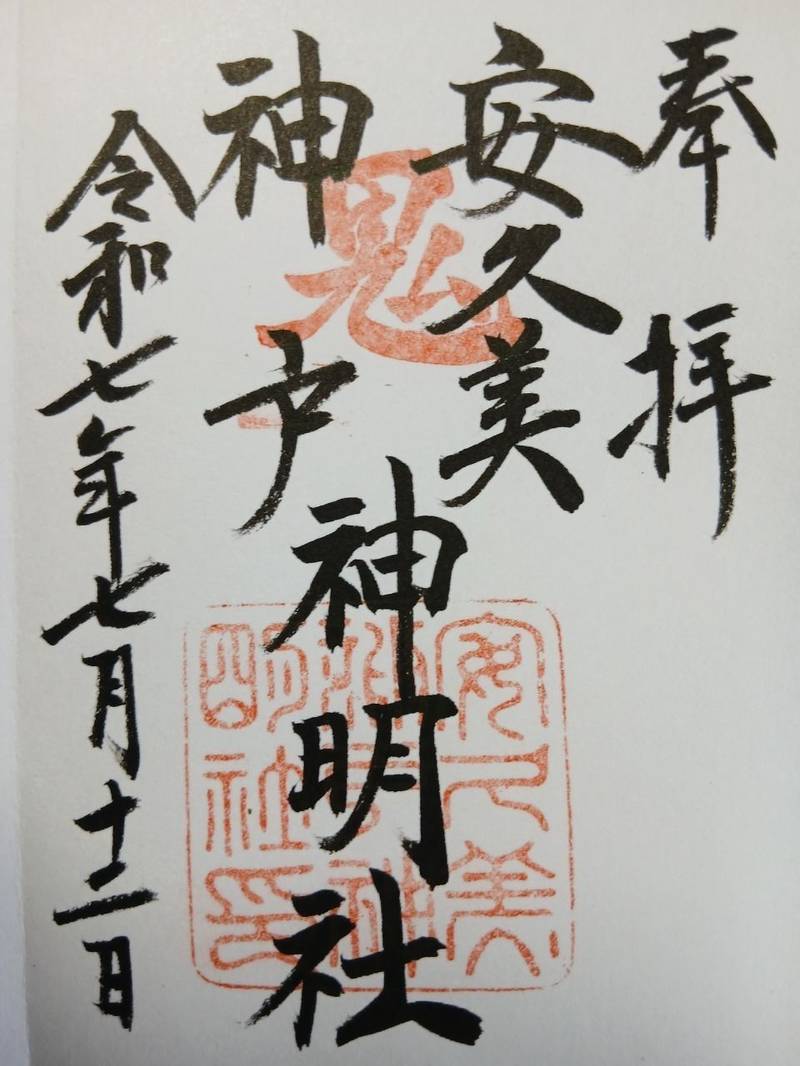 奉拝
安久美
神戸
神明社
令和七年七月十二日
鬼
安久美
神戸神
明社印